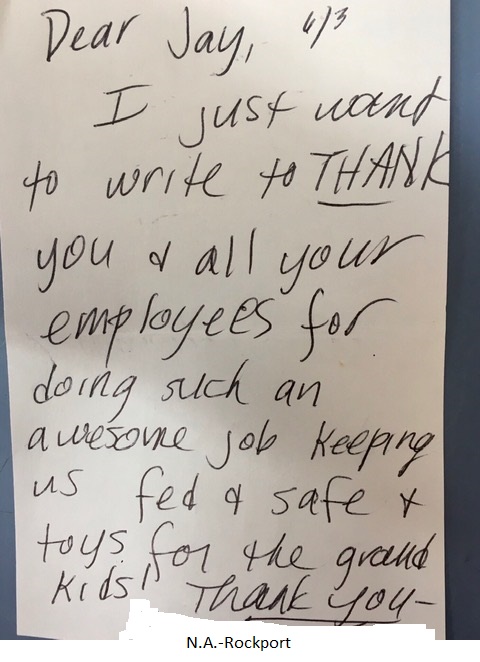 Dear Jay, 6/3
I just want
to write to THANK
you & all your
employees for
doing such an
awesome job keeping
us fed & safe &
toys for the grand
kids!! Thank you-
N.A.-Rockport